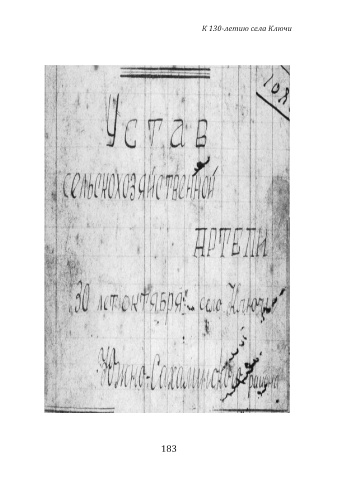 К 130-летию села Ключи
Устав
сельскохозяйственной
АРТЕЛИ
"30 лет октября" село Ключи
Южно-Сахалинского района
183